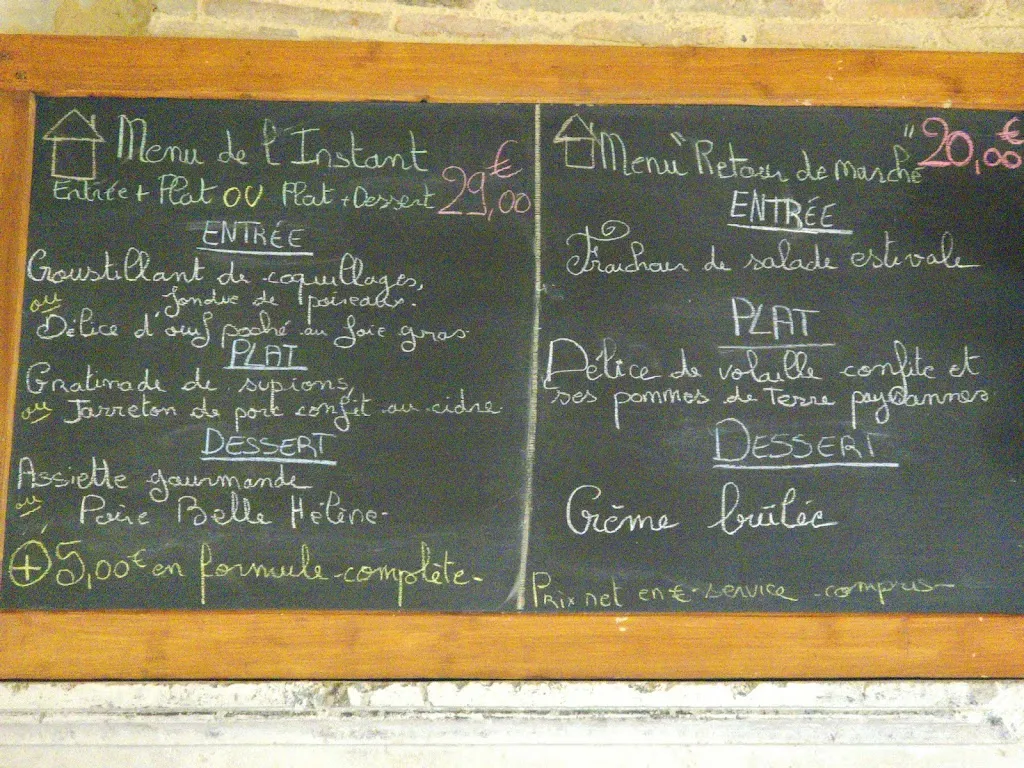 Menu de l'Instant
Entrée + Plat OU Plat + Dessert 29,00 €
ENTRÉE
Croustillant de coquillages,
fondue de poireaux.
ou Délice d'œuf poché au foie gras
PLAT
Gratinade de supions,
ou Jarreton de porc confit au cidre
DESSERT
Assiette gourmande
ou Poire Belle Hélène-
+ 5,00€ en formule-complète-
Menu "Retour de marché" 20,00 €
ENTRÉE
Fraicheur de salade estivale
PLAT
Délice de volaille confite et
ses pommes de Terre paysannes
DESSERT
Crème brûlée
Prix net en €-service-compris-